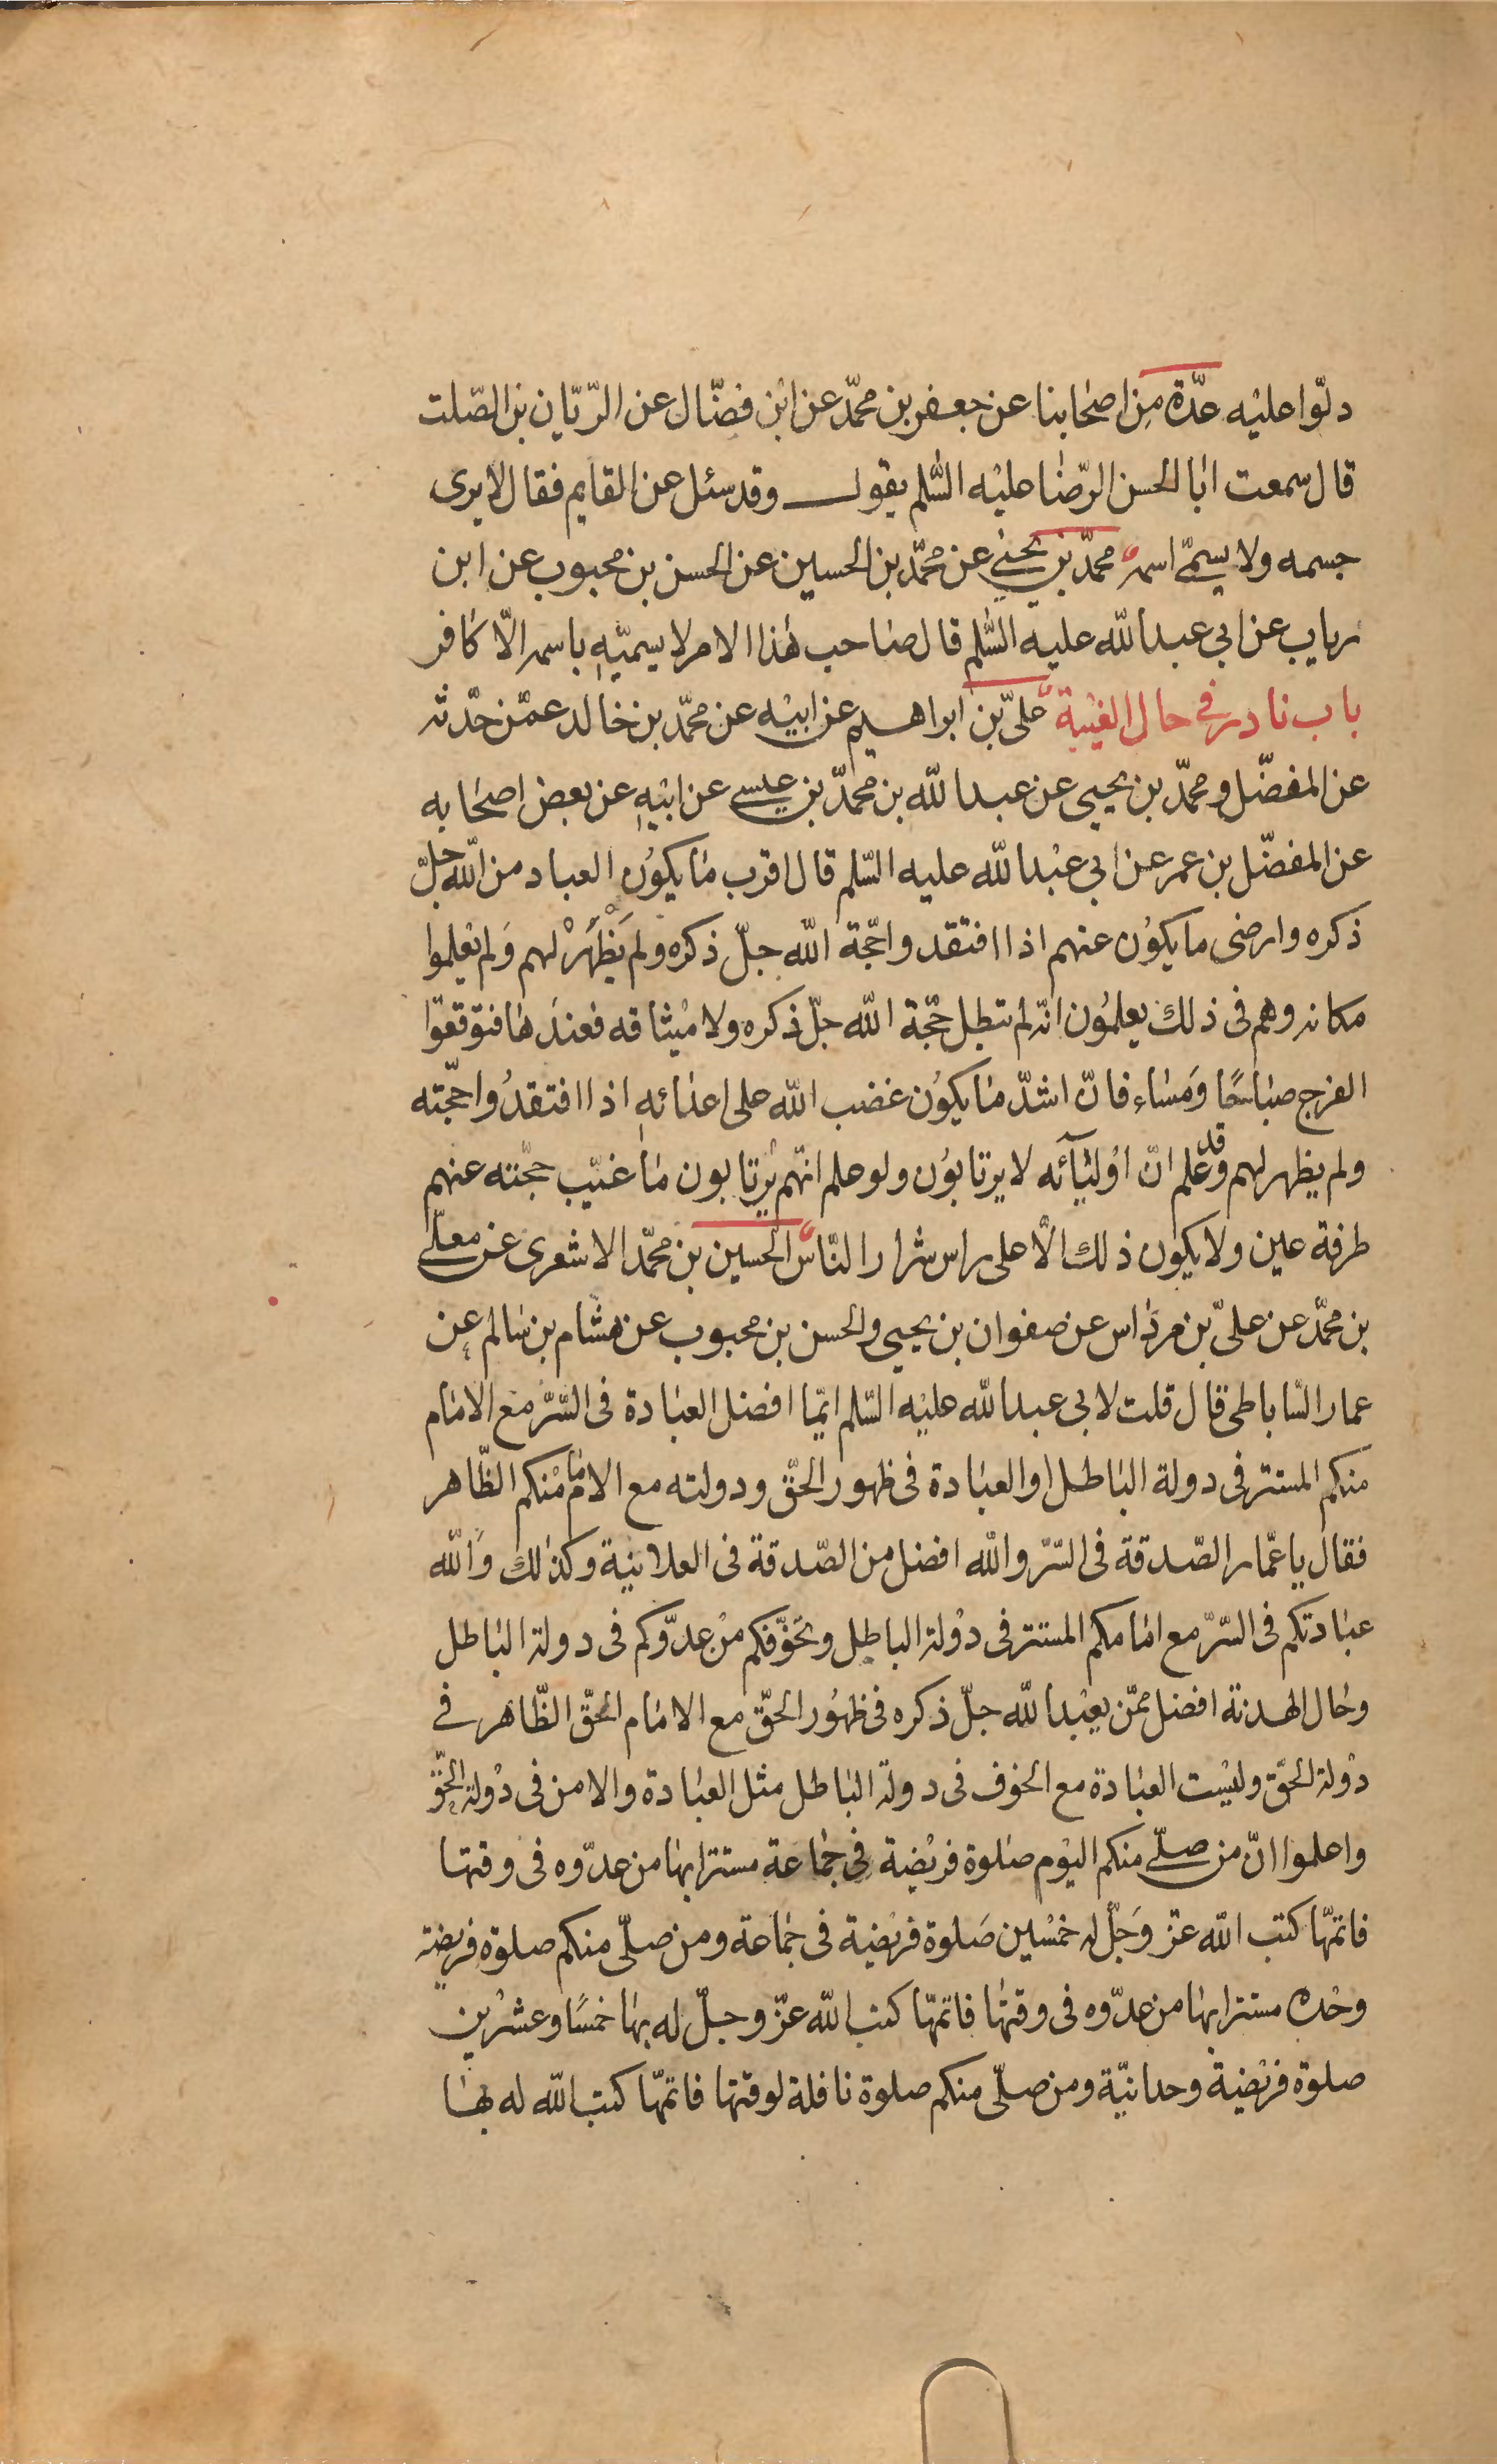 دلّوا عليْه عدّة مِن اصحٰابنا عن جعفر بن محمّد عن ابْن فضّال عن الرّيّان بن الصّلت
قال سمعت ابَا الحسن الرّضٰا عليْه السَّلم يقول وقد سئل عن القايم فقال لا يرى
جسمه ولا يسمّى اسمه محمّد بن يحيٰى عن محمّد بن الحسين عن الحسن بن محبوب عن ابن
رياب عن ابي عبد الله عليه السَّلم قال صٰاحب هٰذا الامر لا يسميّهِ باسمه الّا كافر
باب نادر في حال الغيْبة علىّ بن ابراهيم عن ابيْه عن محمّد بن خالد عمّن حدّثه
عن المفضّل ومحمّد بن يحيى عن عبد الله بن محمّد بن عيسى عن ابيْهِ عن بعض اصحٰابه
عن المفضّل بن عمر عن ابي عبْد الله عليه السّلم قال اقرب مٰا يكوُن العباد من الله جلّ
ذكره وارضى ما يكوُن عنهم اذا افتقدوا حجّة الله جلّ ذكره ولم يَظْهَرْ لهم وَلم يعْلموا
مكانه وهم فى ذلك يعلمُون انّه لم تبطل حجّة الله جلّ ذكره ولا ميْثاقه فعندَهٰا فتوقعوّا
الفرج صبٰاحًا وَمسٰاء فانّ اشدّ مٰا يكوُن غضب الله على اعدٰائهِ اذا افتقدُوا حجّته
ولم يظهر لهم وقد علم انّ اوْليٰآئه لا يرتابوُن ولو علم انّهم يرْتابون مٰا غيّب حجّته عنهم
طرفة عين ولا يكون ذلك الّا على راس شرار النّاس الحسين بن محمّد الاشعرى عن معلّى
بن محمّد عن علىّ بن مردٰاس عن صفوان بن يحيى والحسن بن محبوب عن هشام بن سٰالم عن
عمار السّاباطى قال قلت لابى عبد الله عليْه السّلم ايّما افضل العبٰادة فى السّرّ مع الامٰام
منكم المستتر فى دولة البٰاطل او العبٰادة فى ظهور الحّق ودولته مع الامٰام منْكم الظّاهر
فقٰال يا عمّار الصّدقة فى السّرّ والله افضل من الصّدقة فى العلانية وكذٰلك وَالله
عبٰادتكم فى السّرّ مع امٰامكم المستتر فى دوْلة الباطل وتخوّفكم منْ عدوّكم فى دولة البٰاطل
وحٰال الهدنة افضل ممّن يعبْد الله جلّ ذكره فى ظهُور الحّق مع الامٰام الحّق الظّاهر فى
دوْلة الحّق وليْست العبٰادة مع الخوف فى دولة البٰاطل مثل العبٰادة والامن فى دوْلة الحّق
واعلموا انّ من صلّى منكم اليْوم صٰلوة فريْضة فى جمٰاعة مستترا بهٰا من عدّوه فى وقتها
فاتمّها كتب الله عزّ وَجلّ له خمْسين صَلوة فريْضة فى جمٰاعة ومن صلّى منكم صلوة فريضة
وحْده مستترا بهٰا من عدّوه فى وقتهٰا فاتمّها كتب الله عزّ وجلّ له بهٰا خمسًا وعشرْين
صلوة فريْضة وحدانيّة ومن صلّى منكم صلوة نافلة لوقتها فاتمّها كتب الله له بهٰا